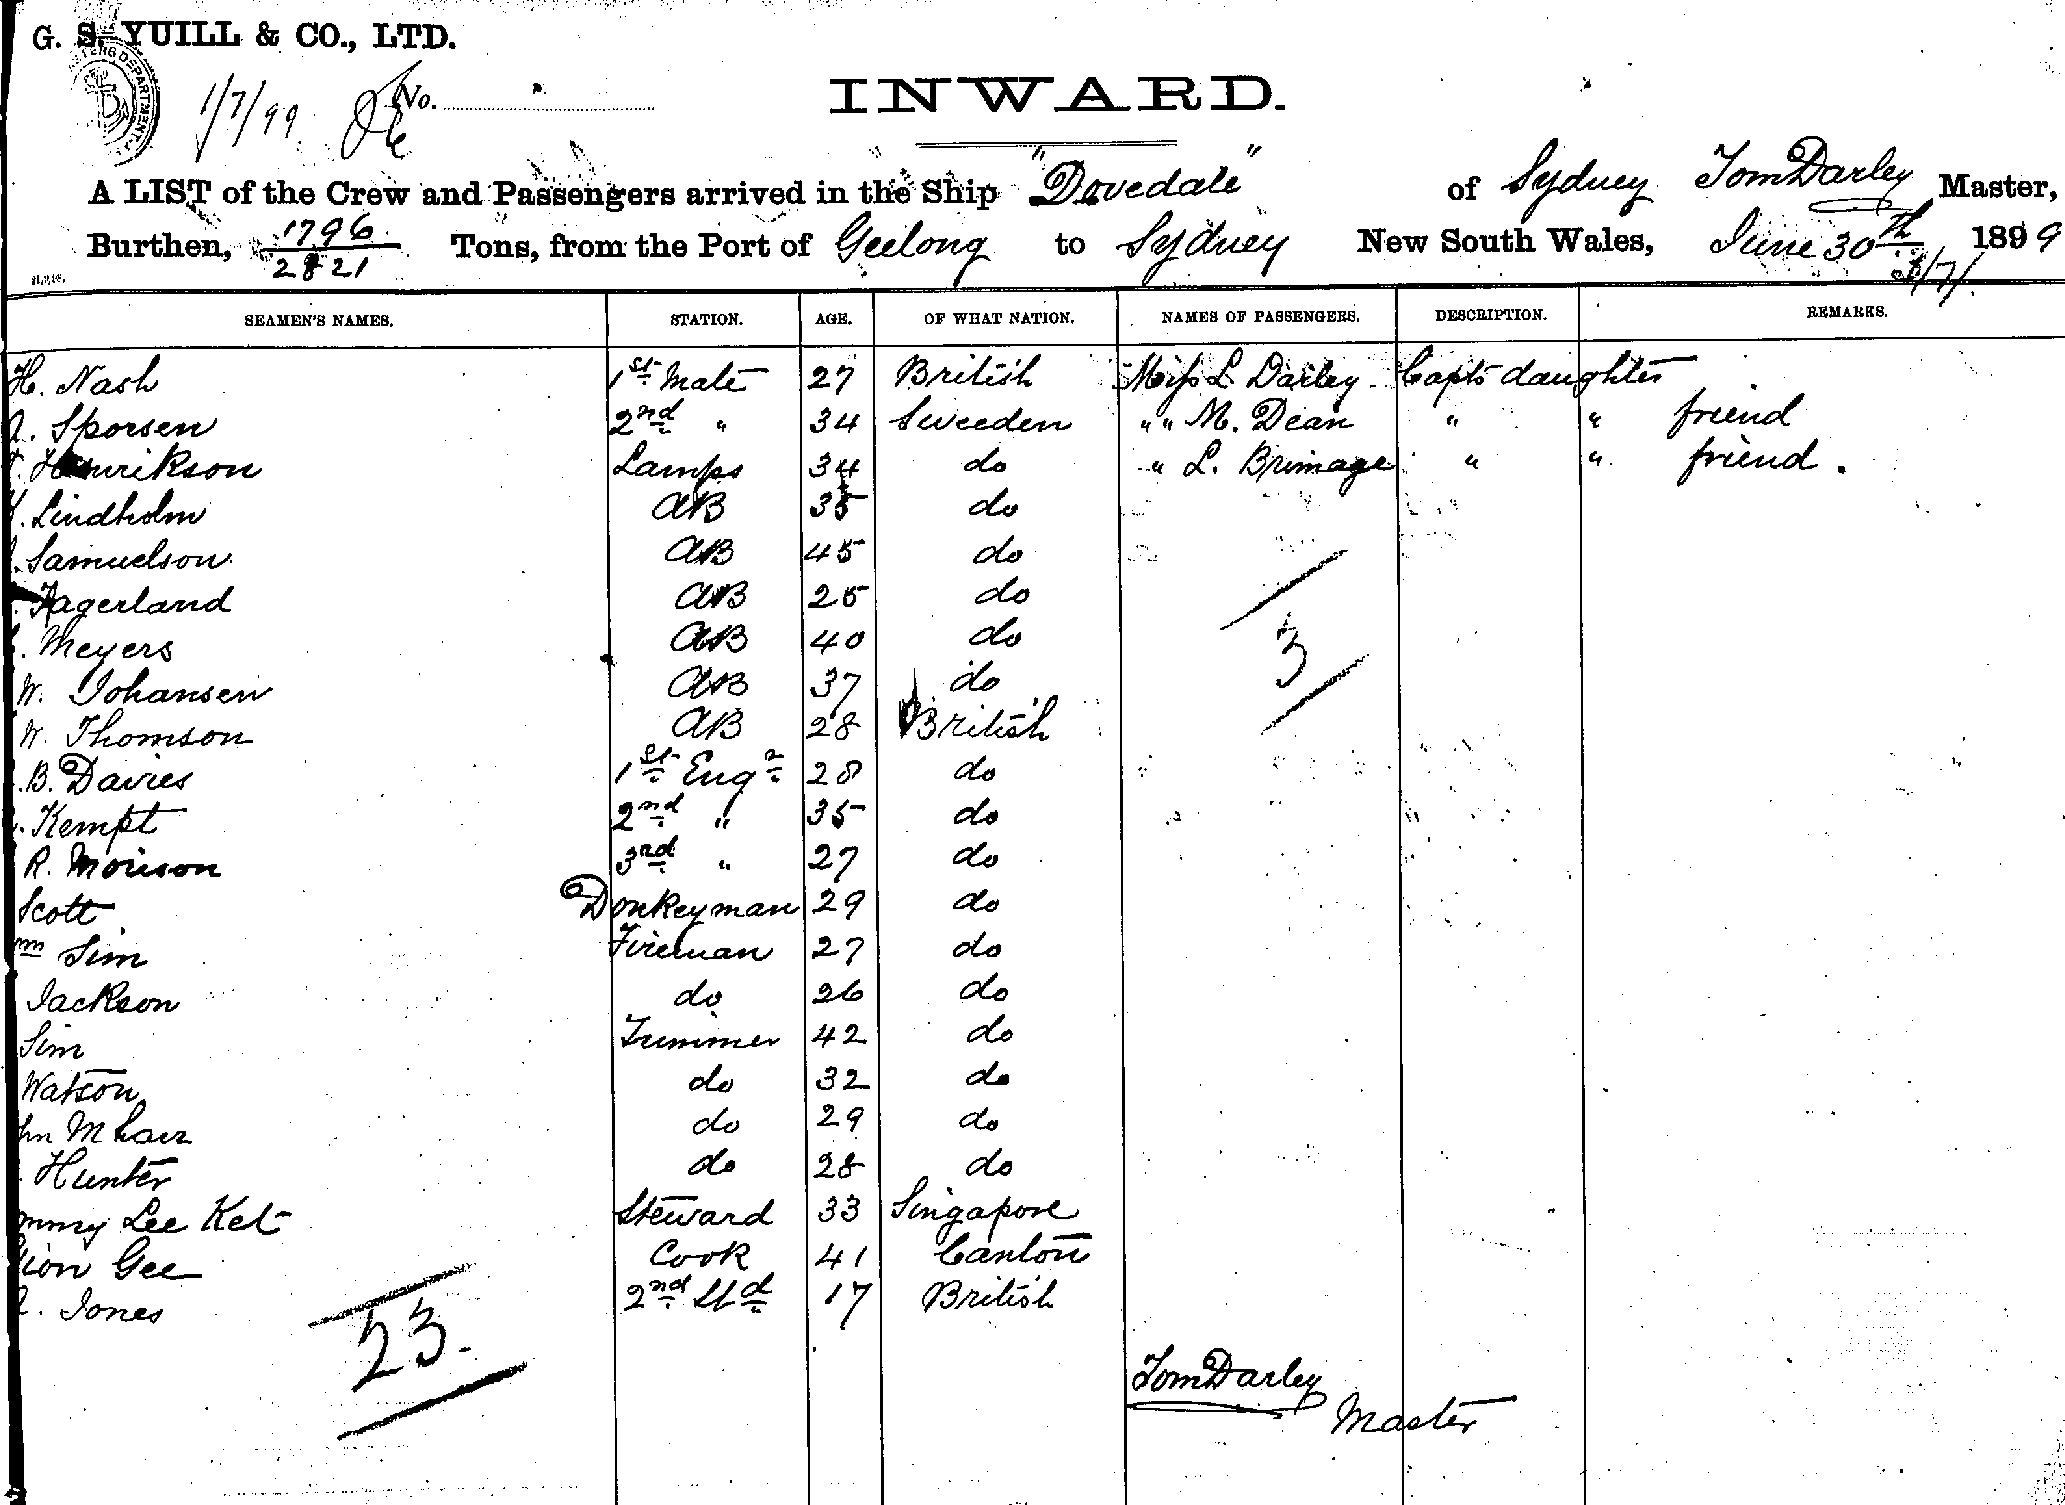 G. S. YUILL & CO., LTD.
1/7/99 No.
INWARD.
A LIST of the Crew and Passengers arrived in the Ship "Dovedale" of Sydney Tom Darley Master,
Burthen, 1796/2821 Tons, from the Port of Geelong to Sydney New South Wales, June 30th 1899
1/7/
SEAMEN'S NAMES. STATION. AGE. OF WHAT NATION. NAMES OF PASSENGERS. DESCRIPTION. REMARKS.
H. Nash 1st Mate 27 British Miss L Darley Capts daughter
Sporsen 2nd " 34 Sweeden " " M. Dean " " friend
Henrikson Lamps 34 do " L. Brimage " " friend.
Lindholm AB 35 do
Samuelson AB 45 do
Fagerland AB 25 do
Meyers AB 40 do
3
W. Johansen AB 37 do
W. Thomson AB 28 British
B. Davies 1st Engr 28 do
Kempt 2nd " 35 do
R. Morison 3rd " 27 do
Scott Donkeyman 29 do
Wm Sim Fireman 27 do
Jackson do 26 do
Sim Trimmer 42 do
Watson do 32 do
do 29 do
Hunter do 28 do
mmy Lee Ket Steward 33 Singapore
Gee Cook 41 Canton
Jones 2nd Std 17 British
23.
Tom Darley
Master